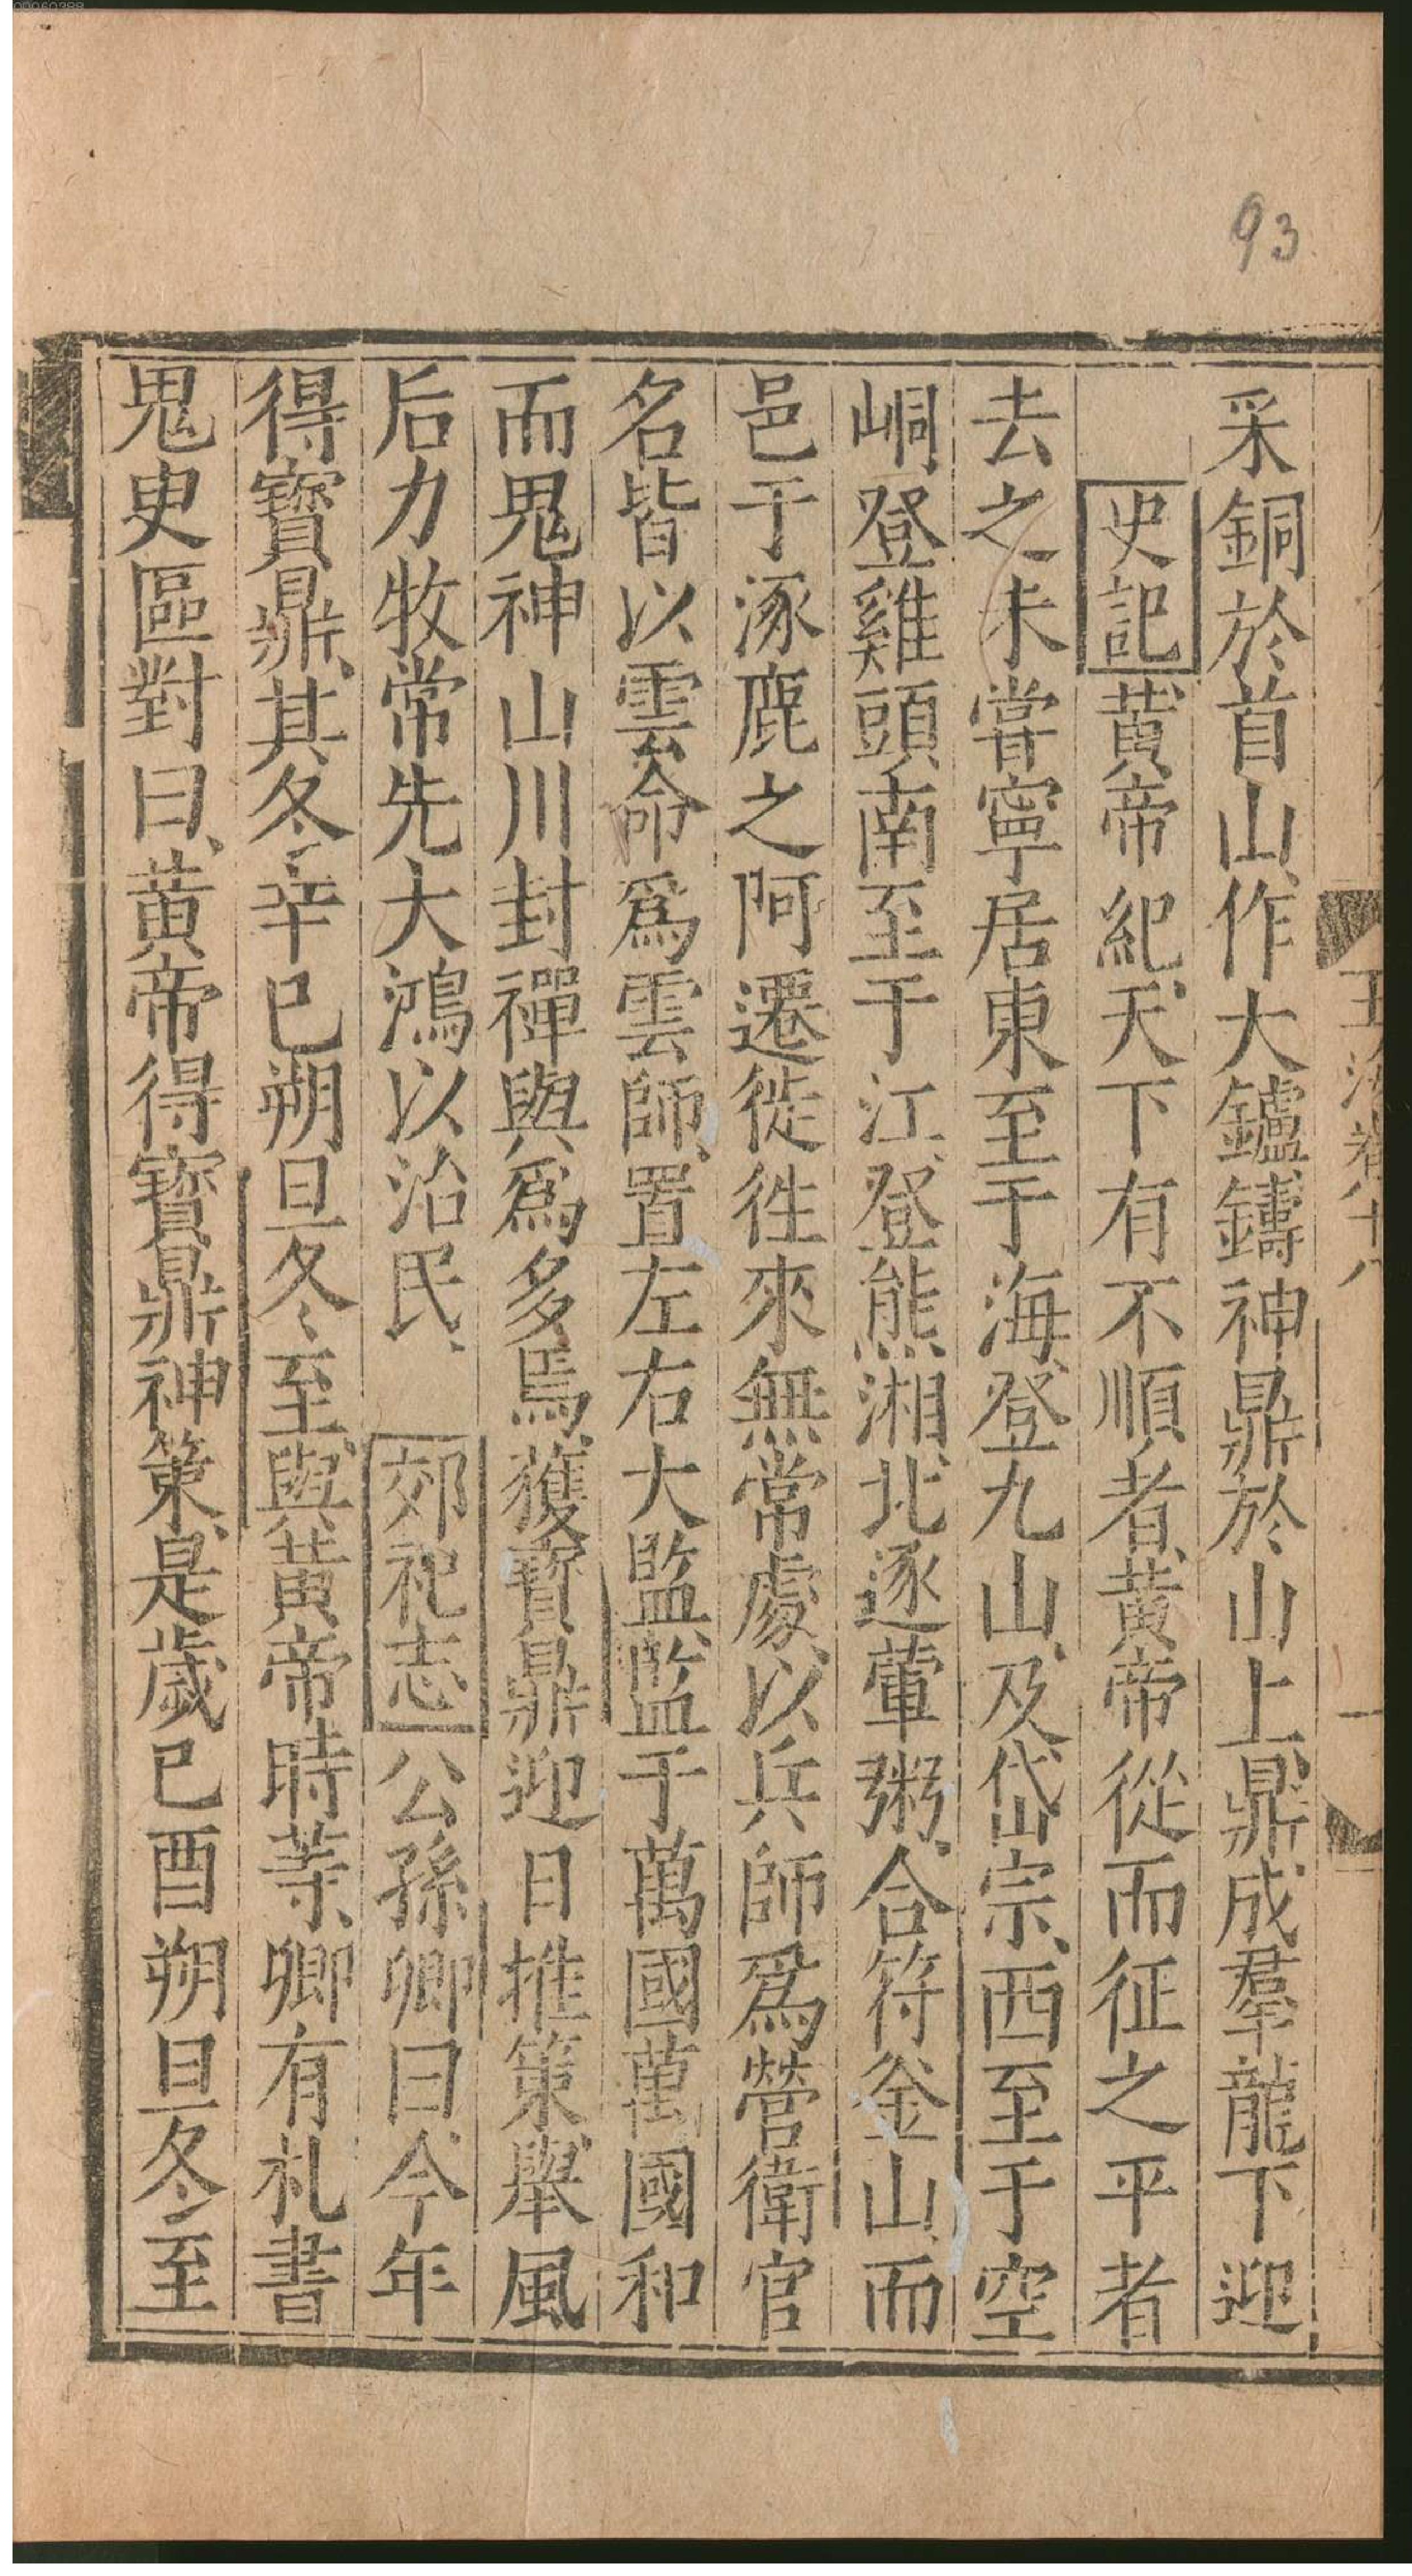 93
采銅於首山、作大鑪、鑄神鼎於山上、鼎成羣龍下迎
史記黃帝紀、天下有不順者、黃帝從而征之平者
去之未嘗寧居東至于海、登九山、及岱宗、西至于空
峒登雞頭南至于江、登熊湘、北逐葷粥、合符釜山、而
邑于涿鹿之阿遷徙徃來無常處、以兵師爲營衛官
名皆以雲命爲雲師、置左右大監、監于萬國萬國和
而鬼神山川封禪與爲多焉、獲寶鼎迎日推策、舉風
后力牧常先大鴻以治民、郊祀志公孫卿曰、今年
得寶鼎、其冬辛巳朔旦冬至、與黃帝時等、卿有札書
鬼史區對曰、黃帝得寶鼎神策、是歲巳酉朔旦冬至